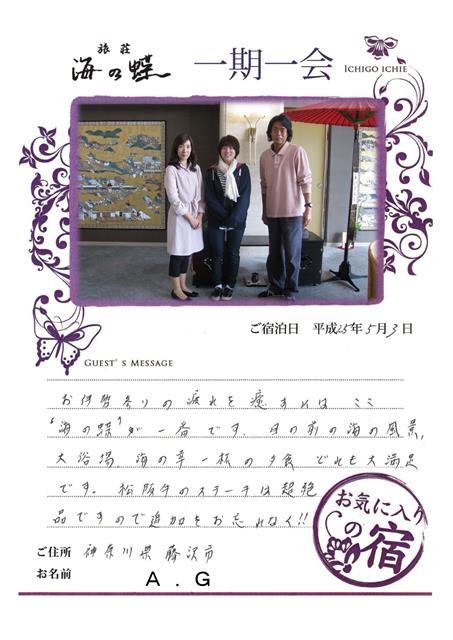 旅荘
海の蝶
一期一会
ICHIGO ICHIE
ご宿泊日 平成25年5月3日
GUEST'S MESSAGE
お伊勢参りの疲れを癒すれは ここ
"海の蝶"が一番です。目の前の海の風景,
大浴場、海の幸一杯の夕食 どれも大満足
です。松阪牛のステーキは超絶
品ですので追加をお忘れなく!!
ご住所 神奈川県藤沢市
お名前 A.G
お気に入り
の宿